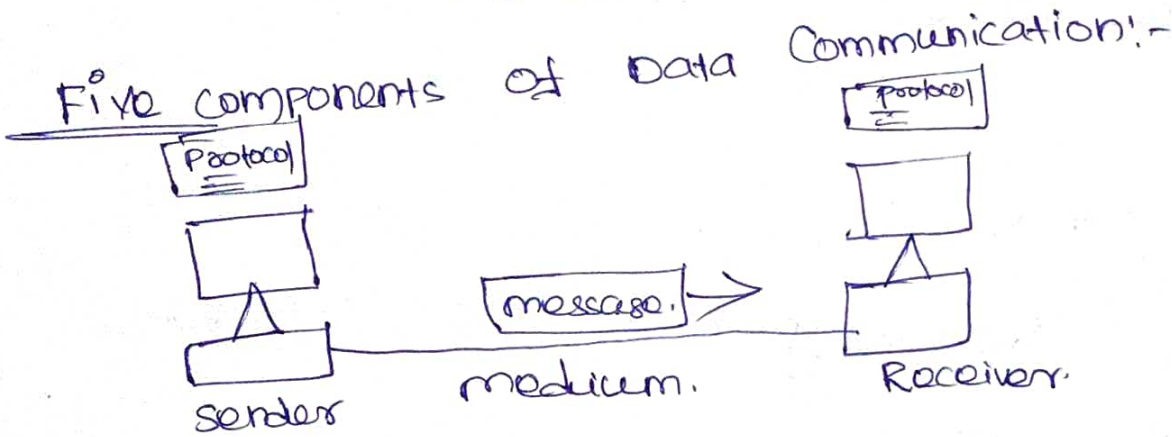 Five components of Data Communication:-
Protocol
Protocol
message.
medium.
sender
Receiver.